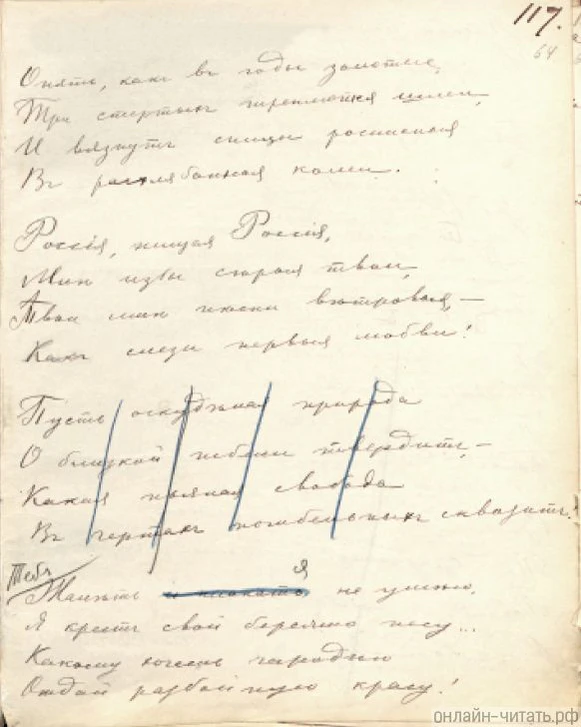 117.
64
Опять, какъ въ годы золотые,
Три стертыхъ треплются шлеи,
И вязнутъ спицы росписныя
Въ расхлябанныя колеи.
Россія, нищая Россія,
Мнѣ избы сѣрыя твои,
Твои мнѣ пѣсни вѣтровыя, —
Какъ слезы первыя любви!
Пусть оскудѣлая природа
О близкой гибели твердитъ, —
Какая пьяная свобода
Въ чертахъ погибельныхъ сквозитъ!
Тебя
Жалѣть и плакать я не умѣю,
Я крестъ свой бережно несу...
Какому хочешь чародѣю
Отдай разбойную красу!
онлайн-читать.рф